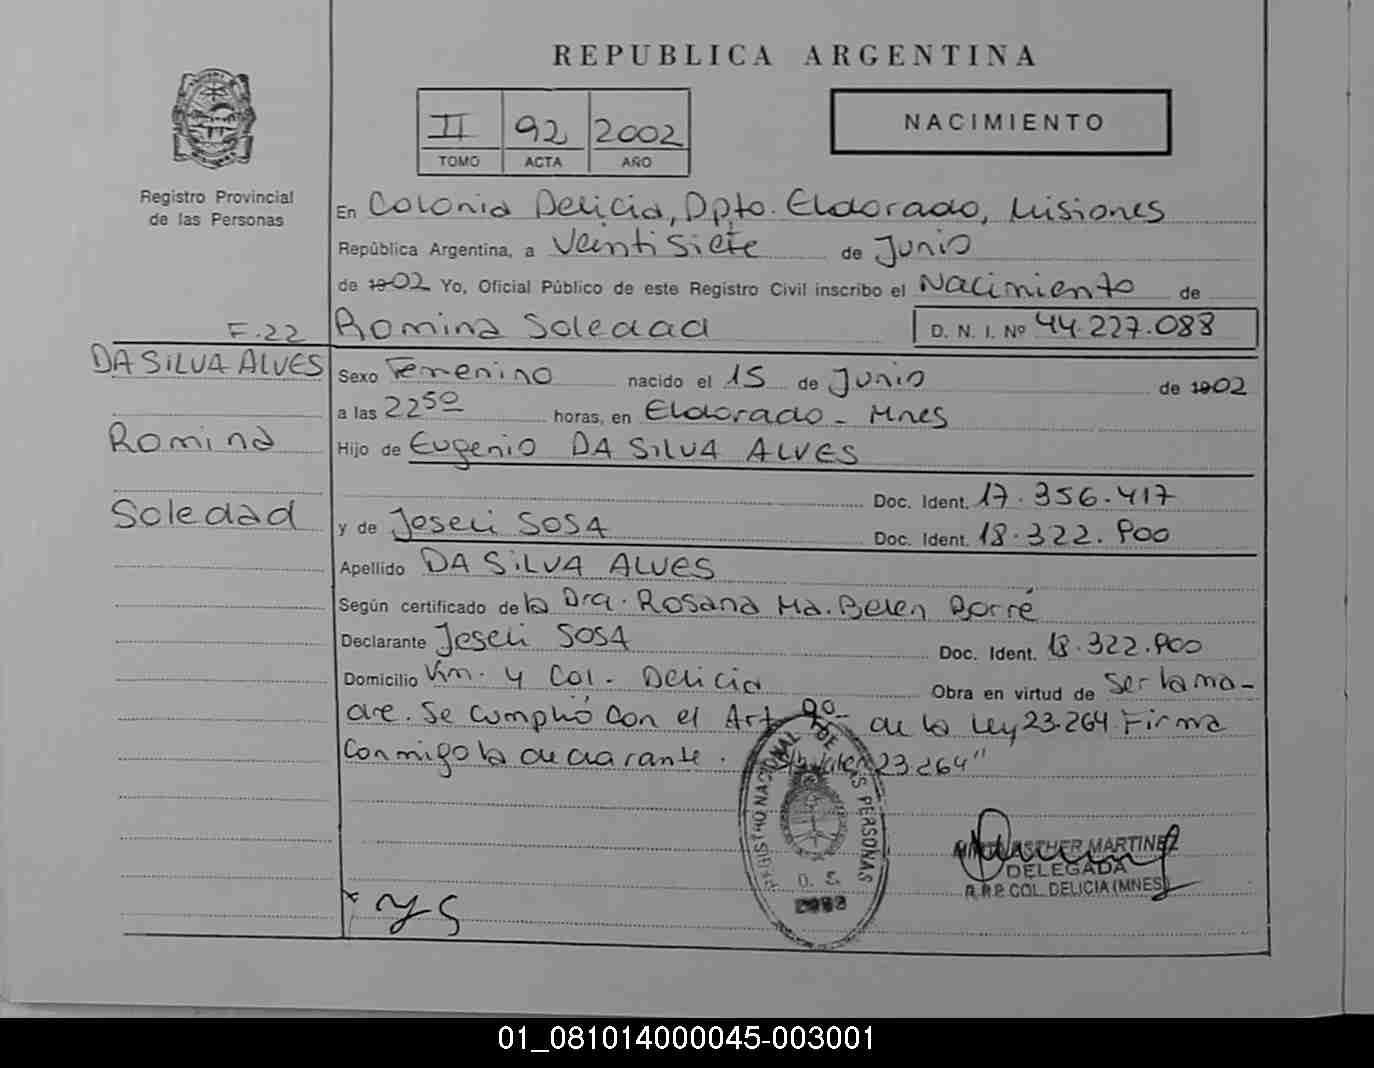 REPUBLICA ARGENTINA
II 92 2002
TOMO ACTA AÑO
NACIMIENTO
Registro Provincial
de las Personas
En Colonia Delicia, Dpto. Eldorado, Misiones
República Argentina, a Veintisiete de Junio
de 1902 Yo, Oficial Público de este Registro Civil inscribo el Nacimiento de
F.22 Romina Soledad D. N. I. Nº 44.227.088
DA SILVA ALVES
Romina
Soledad
Sexo Femenino nacido el 15 de Junio de 1902
a las 22⁵⁰ horas, en Eldorado - Mnes
Hijo de Eugenio DA SILVA ALVES
Doc. Ident. 17.356.417
y de Joseli SOSA Doc. Ident. 18.322.900
Apellido DA SILVA ALVES
Según certificado de la Dra. Rosana Ma. Belen Borré
Declarante Joseli SOSA Doc. Ident. 18.322.900
Domicilio Km. 4 Col. Delicia Obra en virtud de ser la ma-
dre. Se cumplió con el Art 9º de la Ley 23.264 Firma
conmigo la declarante. 23.264"
REGISTRO NACIONAL DE LAS PERSONAS
O. S.
ESTHER MARTINEZ
DELEGADA
R.P.P. COL. DELICIA (MNES)
01_081014000045-003001